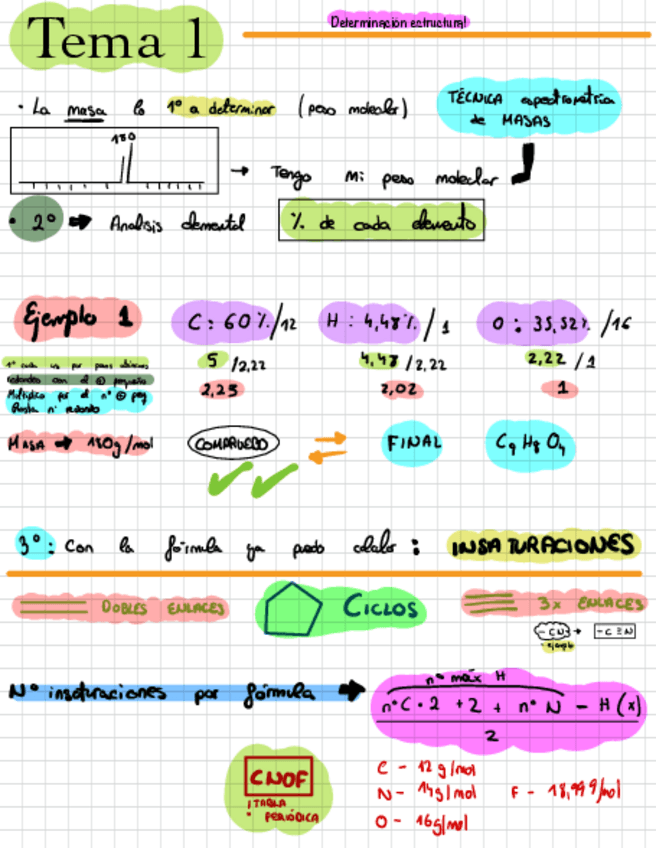 Tema 1
Determinación estructural
· La masa lo 1º a determinar (peso molecular)
TÉCNICA espectrometrica de MASAS
180
→ Tengo mi peso molecular
· 2º → Analisis elemental % de cada elemento
Ejemplo 1
C : 60% / 12 H : 4,48% / 1 O : 35,52% / 16
1º cada uno por pesos atómicos
redondeo con el pequeño
Multiplico por el nº peq
Hasta nº redondo
5 / 2,22 4,48 / 2,22 2,22 / 1
2,25 2,02 1
MASA → 180g/mol COMPRUEBO FINAL C9 H8 O4
3º: Con la fórmula ya puedo calcular : INSATURACIONES
DOBLES ENLACES CICLOS 3x ENLACES
-CN → -C≡N
ejemplo
Nº insaturaciones por fórmula →
nº máx H
nºC · 2 + 2 + nº N - H (x)
2
CNOF
! TABLA PERIÓDICA
C - 12 g/mol
N - 14g/mol F - 18,99 g/mol
O - 16g/mol